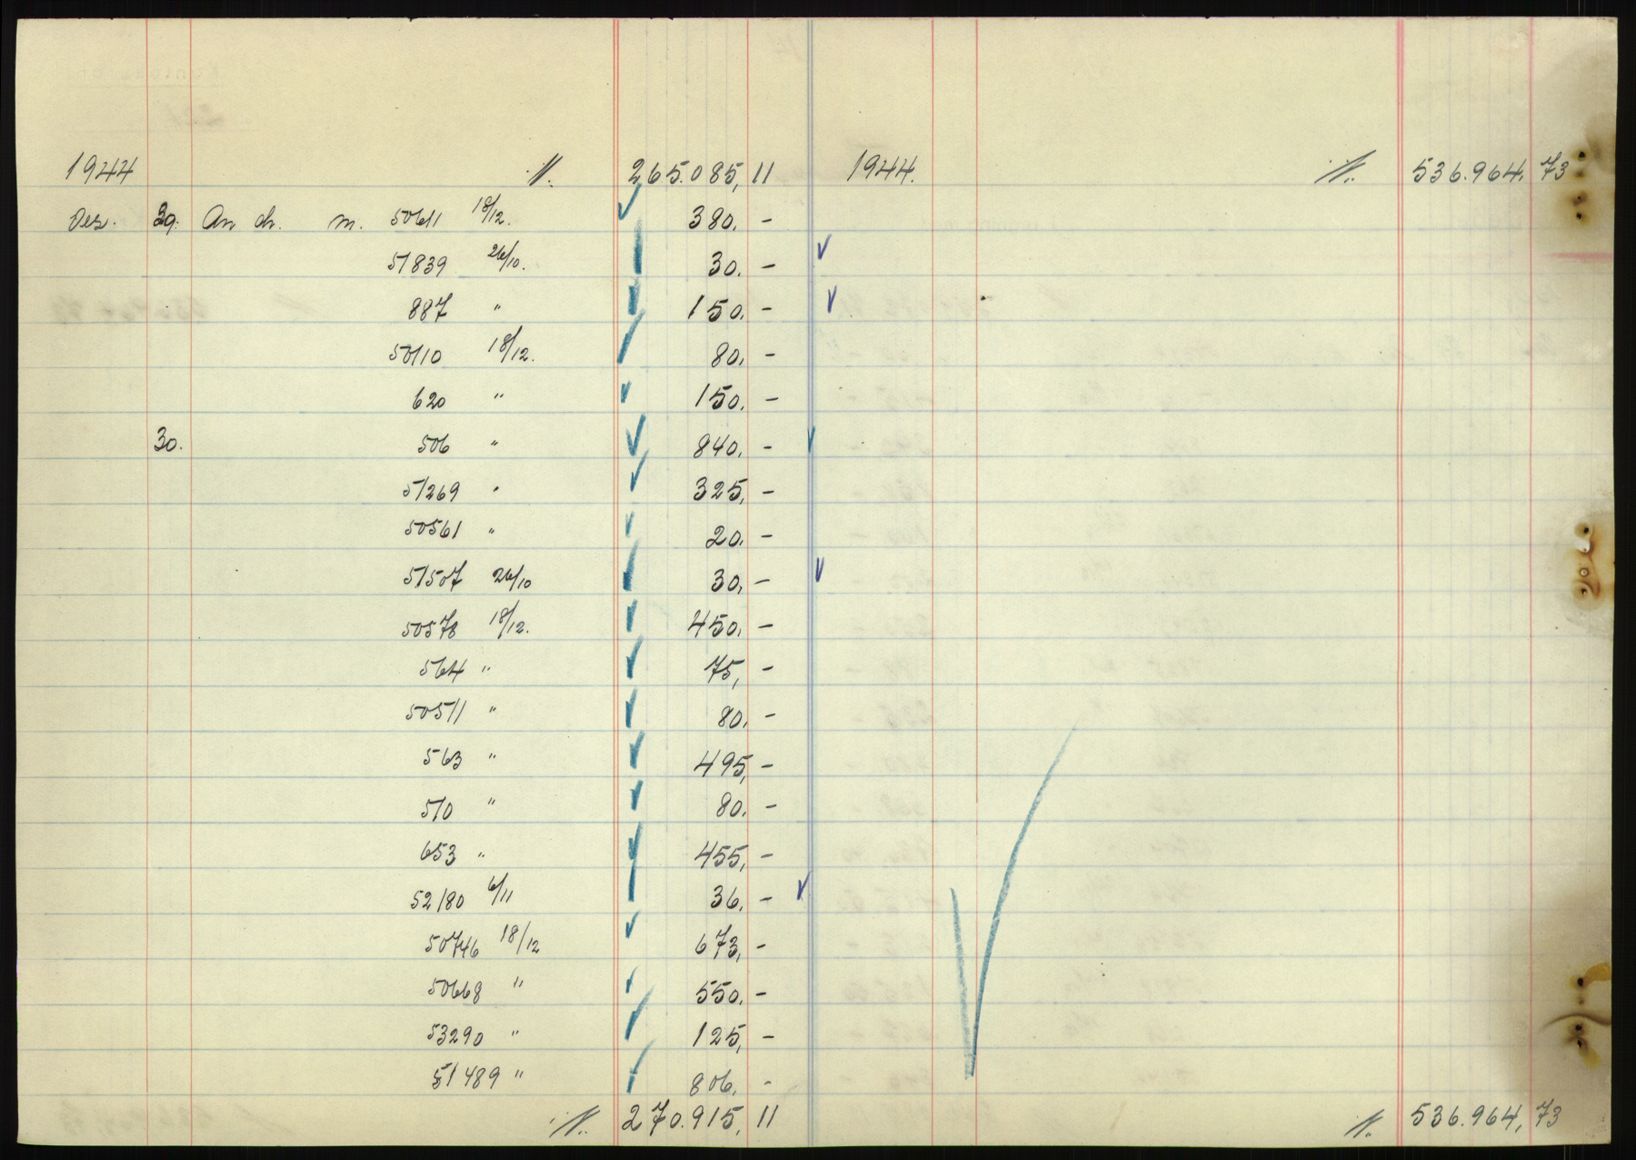 1944 ./. 265.085,11 1944. ./. 536.964,73
Dez. 29. An ch. m. 50611 18/12. 380.-
51839 26/10. 30.-
887 " 150.-
50110 18/12. 80.-
620 " 150.-
30. 506 " 840.-
51269 " 325,-
50561 " 20.-
51507 26/10 30.-
50578 18/12. 450.-
564 " 75,-
50511 " 80.-
563 " 495,-
510 " 80.-
653 " 455,-
52180 6/11 36.-
50746 18/12 673,-
50668 " 550.-
53290 " 125,-
51489 " 806.-
./. 270.915,11 ./. 536.964,73